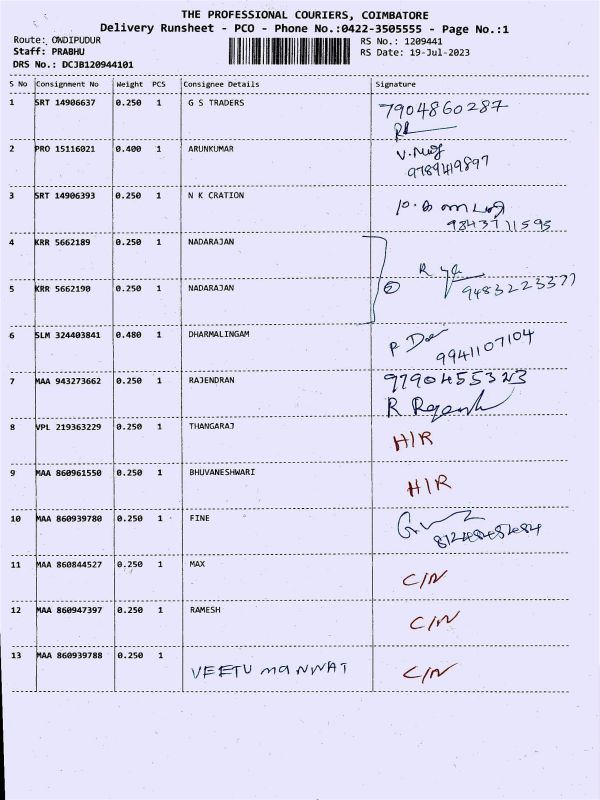 THE PROFESSIONAL COURIERS, COIMBATORE
Delivery Runsheet - PCO - Phone No.:0422-3505555 - Page No.:1
Route: ONDIPUDUR RS No.: 1209441
Staff: PRABHU RS Date: 19-Jul-2023
DRS No.: DCJB120944101
S No Consignment No Weight PCS Consignee Details Signature
1 SRT 14906637 0.250 1 G S TRADERS 7904860287
2 PRO 15116021 0.400 1 ARUNKUMAR
9789419897
3 SRT 14906393 0.250 1 N K CRATION
9843711595
4 KRR 5662189 0.250 1 NADARAJAN
5 KRR 5662190 0.250 1 NADARAJAN 9483223377
6 SLM 324403841 0.480 1 DHARMALINGAM
9941107104
7 MAA 943273662 0.250 1 RAJENDRAN 9790455323
8 VPL 219363229 0.250 1 THANGARAJ H/R
9 MAA 860961550 0.250 1 BHUVANESHWARI H/R
10 MAA 860939780 0.250 1 FINE
11 MAA 860844527 0.250 1 MAX C/N
12 MAA 860947397 0.250 1 RAMESH C/N
13 MAA 860939788 0.250 1 VEETU MANNAT C/N